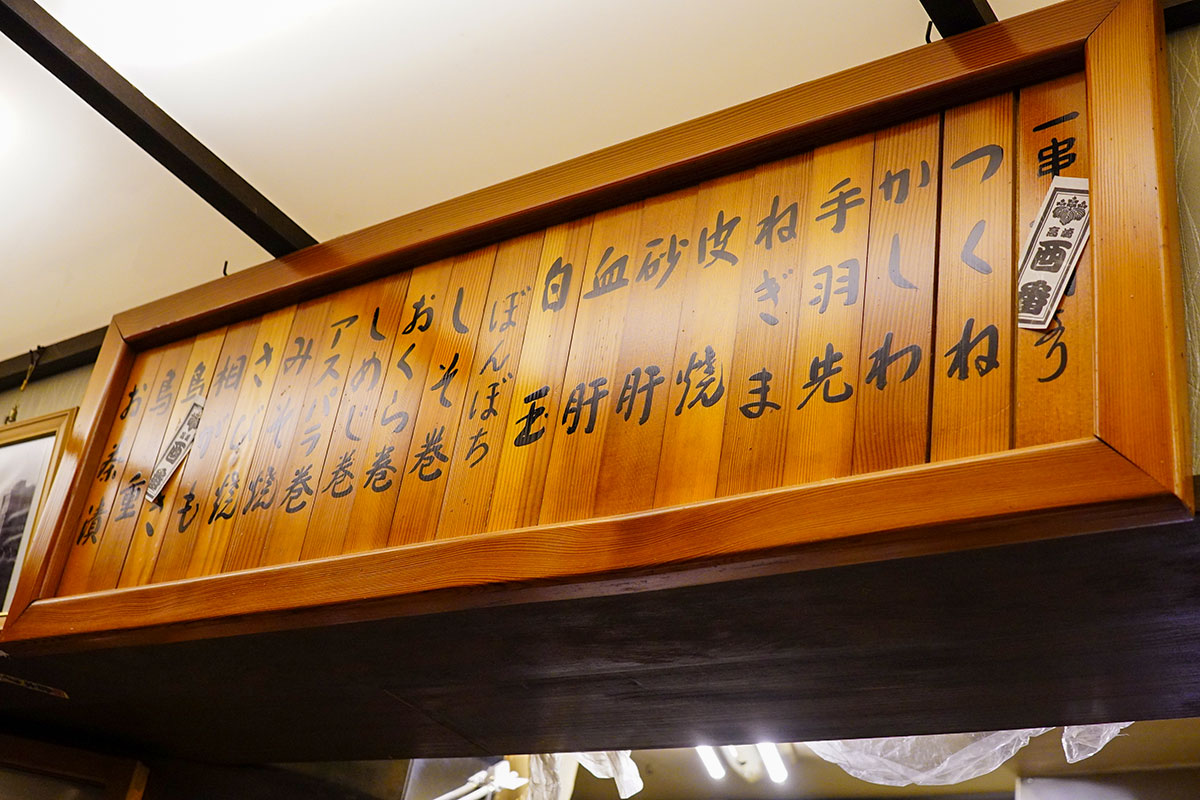 一串
つくね
かしわ
手羽先
ねぎま
皮焼
砂肝
血肝
白玉
ぼんぼち
しそ巻
おくら巻
しめじ巻
アスパラ巻
みそ焼
さび焼
相がも
鳥き
鳥重
お茶漬
高崎